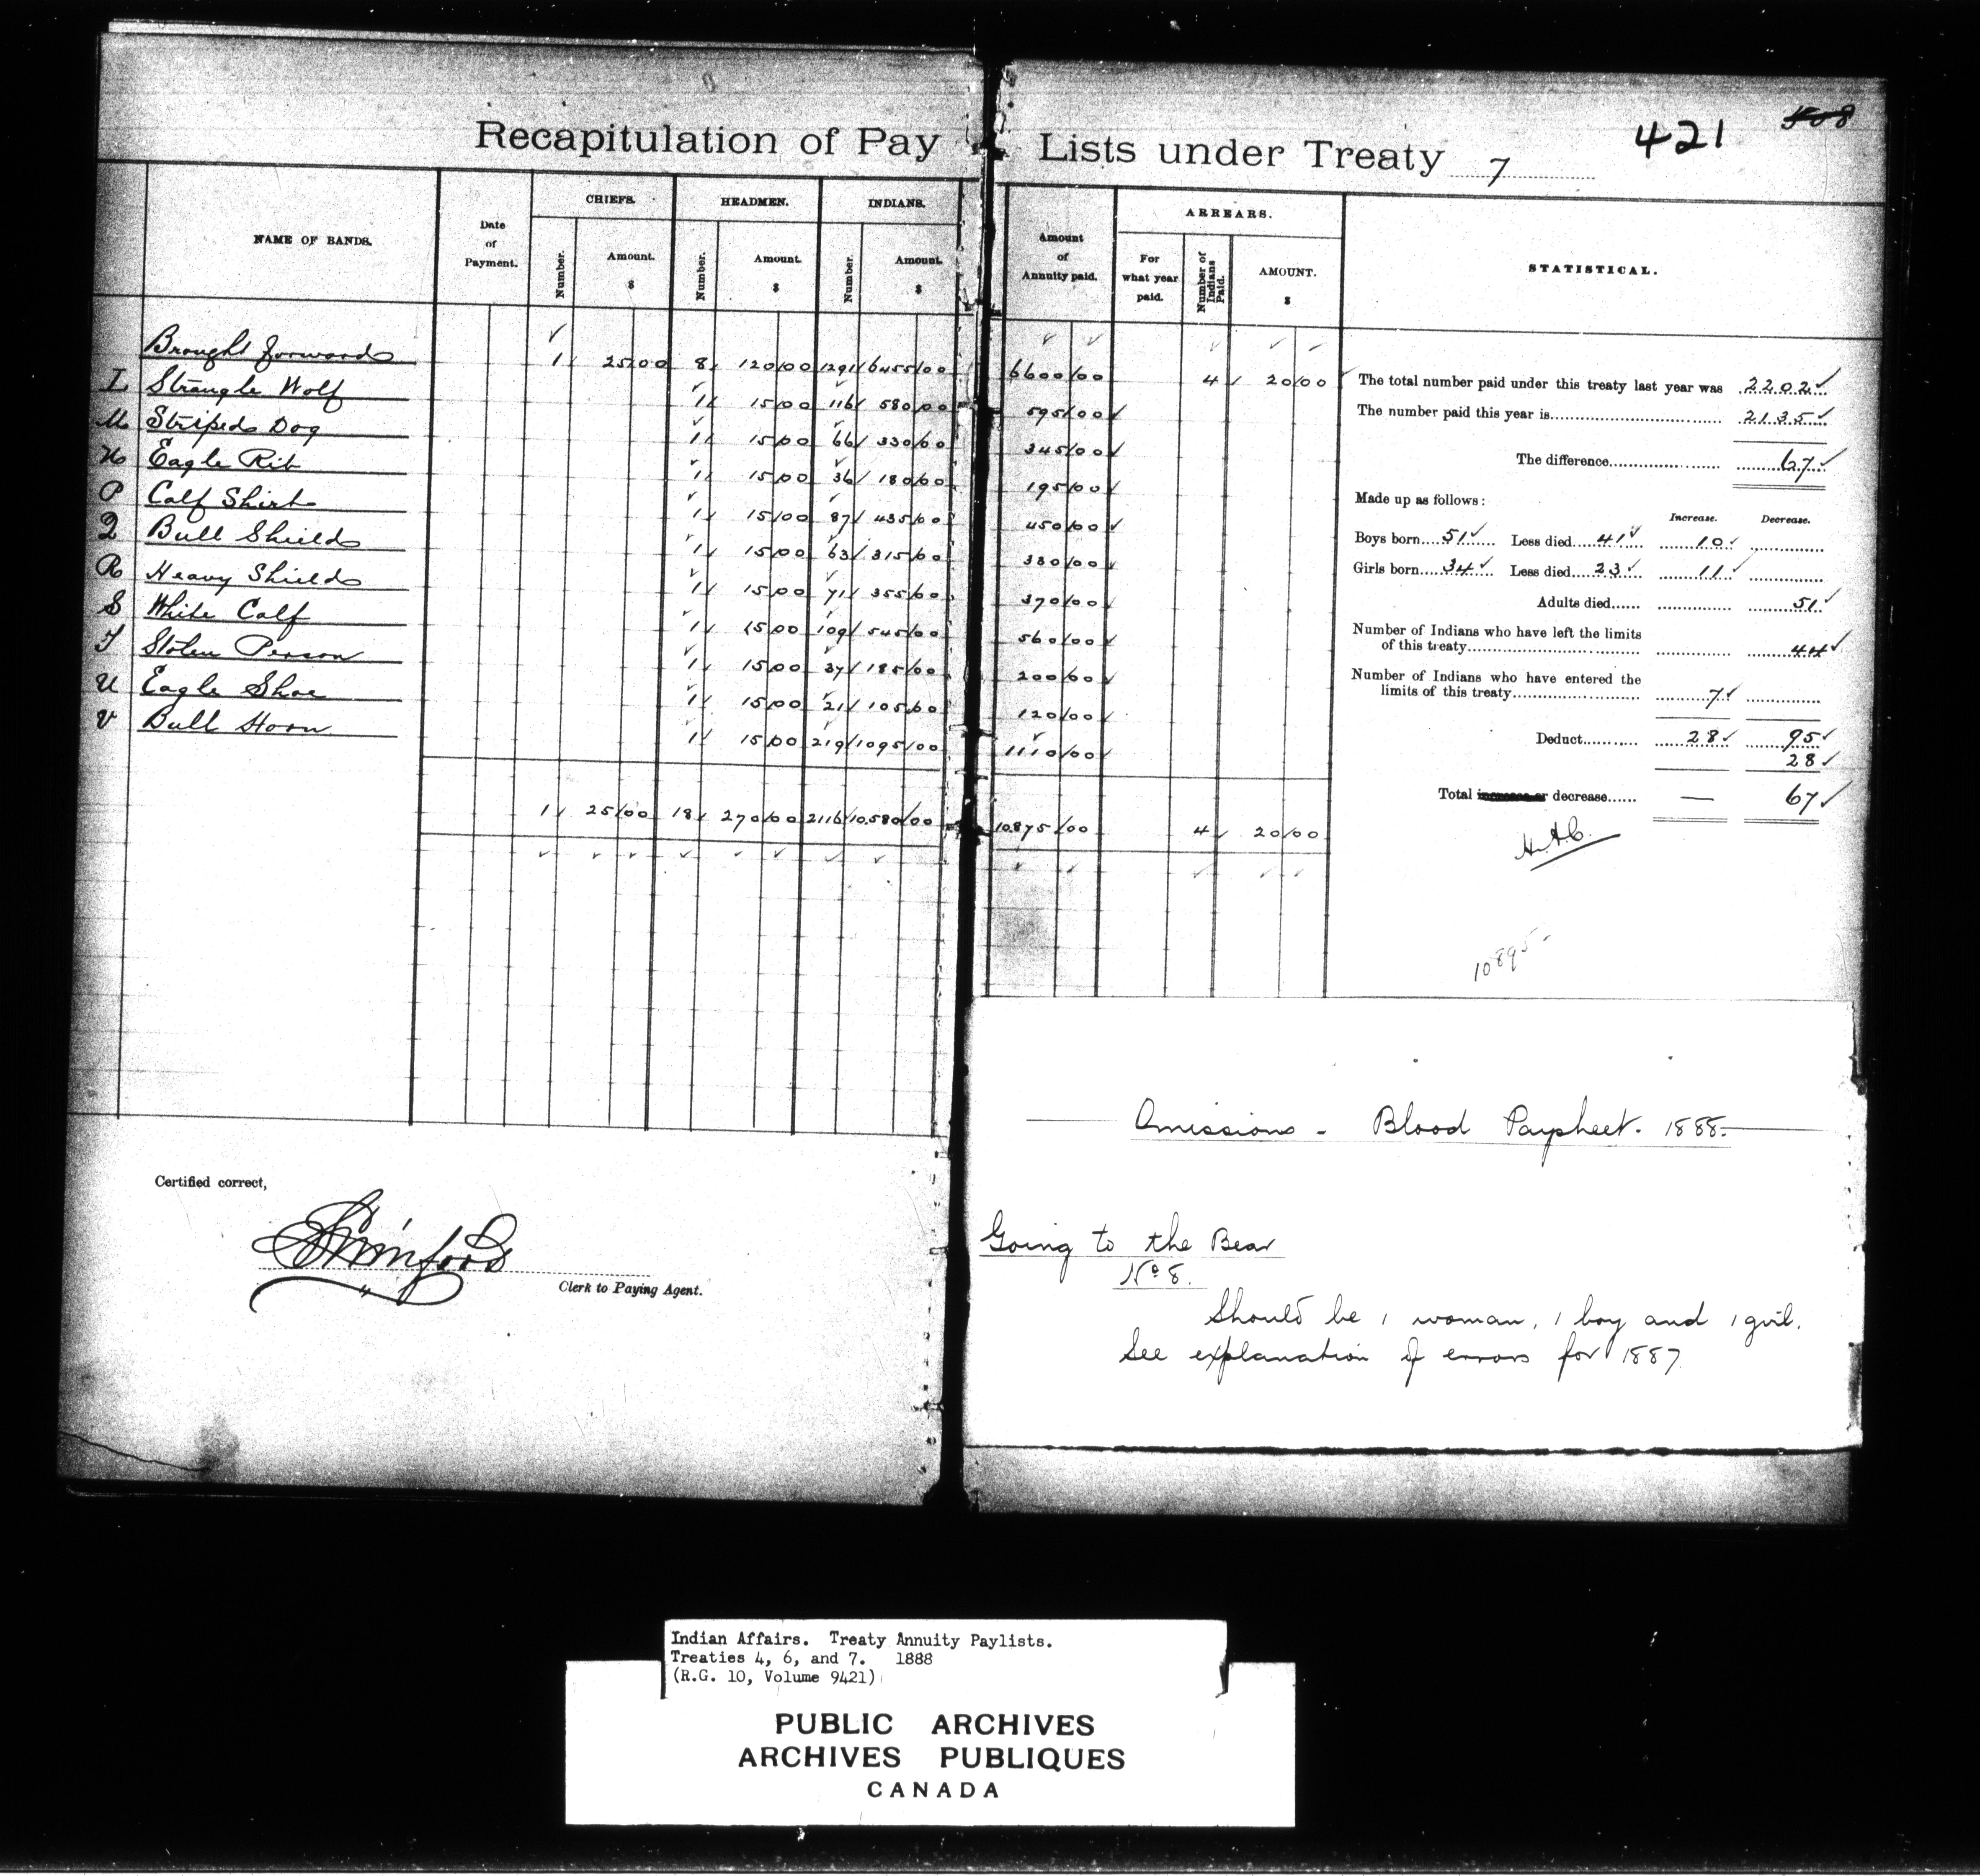 421 508
Recapitulation of Pay Lists under Treaty 7
NAME OF BANDS. Date of Payment. CHIEFS. Number. Amount. $ HEADMEN. Number. Amount. $ INDIANS. Number. Amount. $ Amount of Annuity paid. ARREARS. For what year paid. Number of Indians Paid. AMOUNT. $ STATISTICAL.
Brought forward 1 25 00 8 120 00 1291 6455 00 6600 00 4 20 00
L Strangle Wolf 1 15 00 116 580 00 595 00
M Striped Dog 1 15 00 66 330 00 345 00
N Eagle Rib 1 15 00 36 180 00 195 00
P Calf Shirt 1 15 00 87 435 00 450 00
Q Bull Shield 1 15 00 63 315 00 330 00
R Heavy Shield 1 15 00 71 355 00 370 00
S White Calf 1 15 00 109 545 00 560 00
T Stolen Person 1 15 00 37 185 00 200 00
U Eagle Shoe 1 15 00 21 105 00 120 00
V Bull Horn 1 15 00 219 1095 00 1110 00
1 25 00 18 270 00 2116 10.580 00 10.875 00 4 20 00
The total number paid under this treaty last year was 2202
The number paid this year is 2135
The difference 67
Made up as follows:
Increase. Decrease.
Boys born 51 Less died 41 10
Girls born 34 Less died 23 11
Adults died 51
Number of Indians who have left the limits
of this treaty 44
Number of Indians who have entered the
limits of this treaty 7
Deduct 28 95
28
Total increase or decrease — 67
H.A.C.
10895-
Certified correct,
Clerk to Paying Agent.
Omissions - Blood Paysheet. 1888.
Going to the Bear
No 8.
Should be 1 woman, 1 boy and 1 girl.
See explanation of errors for 1887
Indian Affairs. Treaty Annuity Paylists.
Treaties 4, 6, and 7. 1888
(R.G. 10, Volume 9421)
PUBLIC ARCHIVES
ARCHIVES PUBLIQUES
CANADA